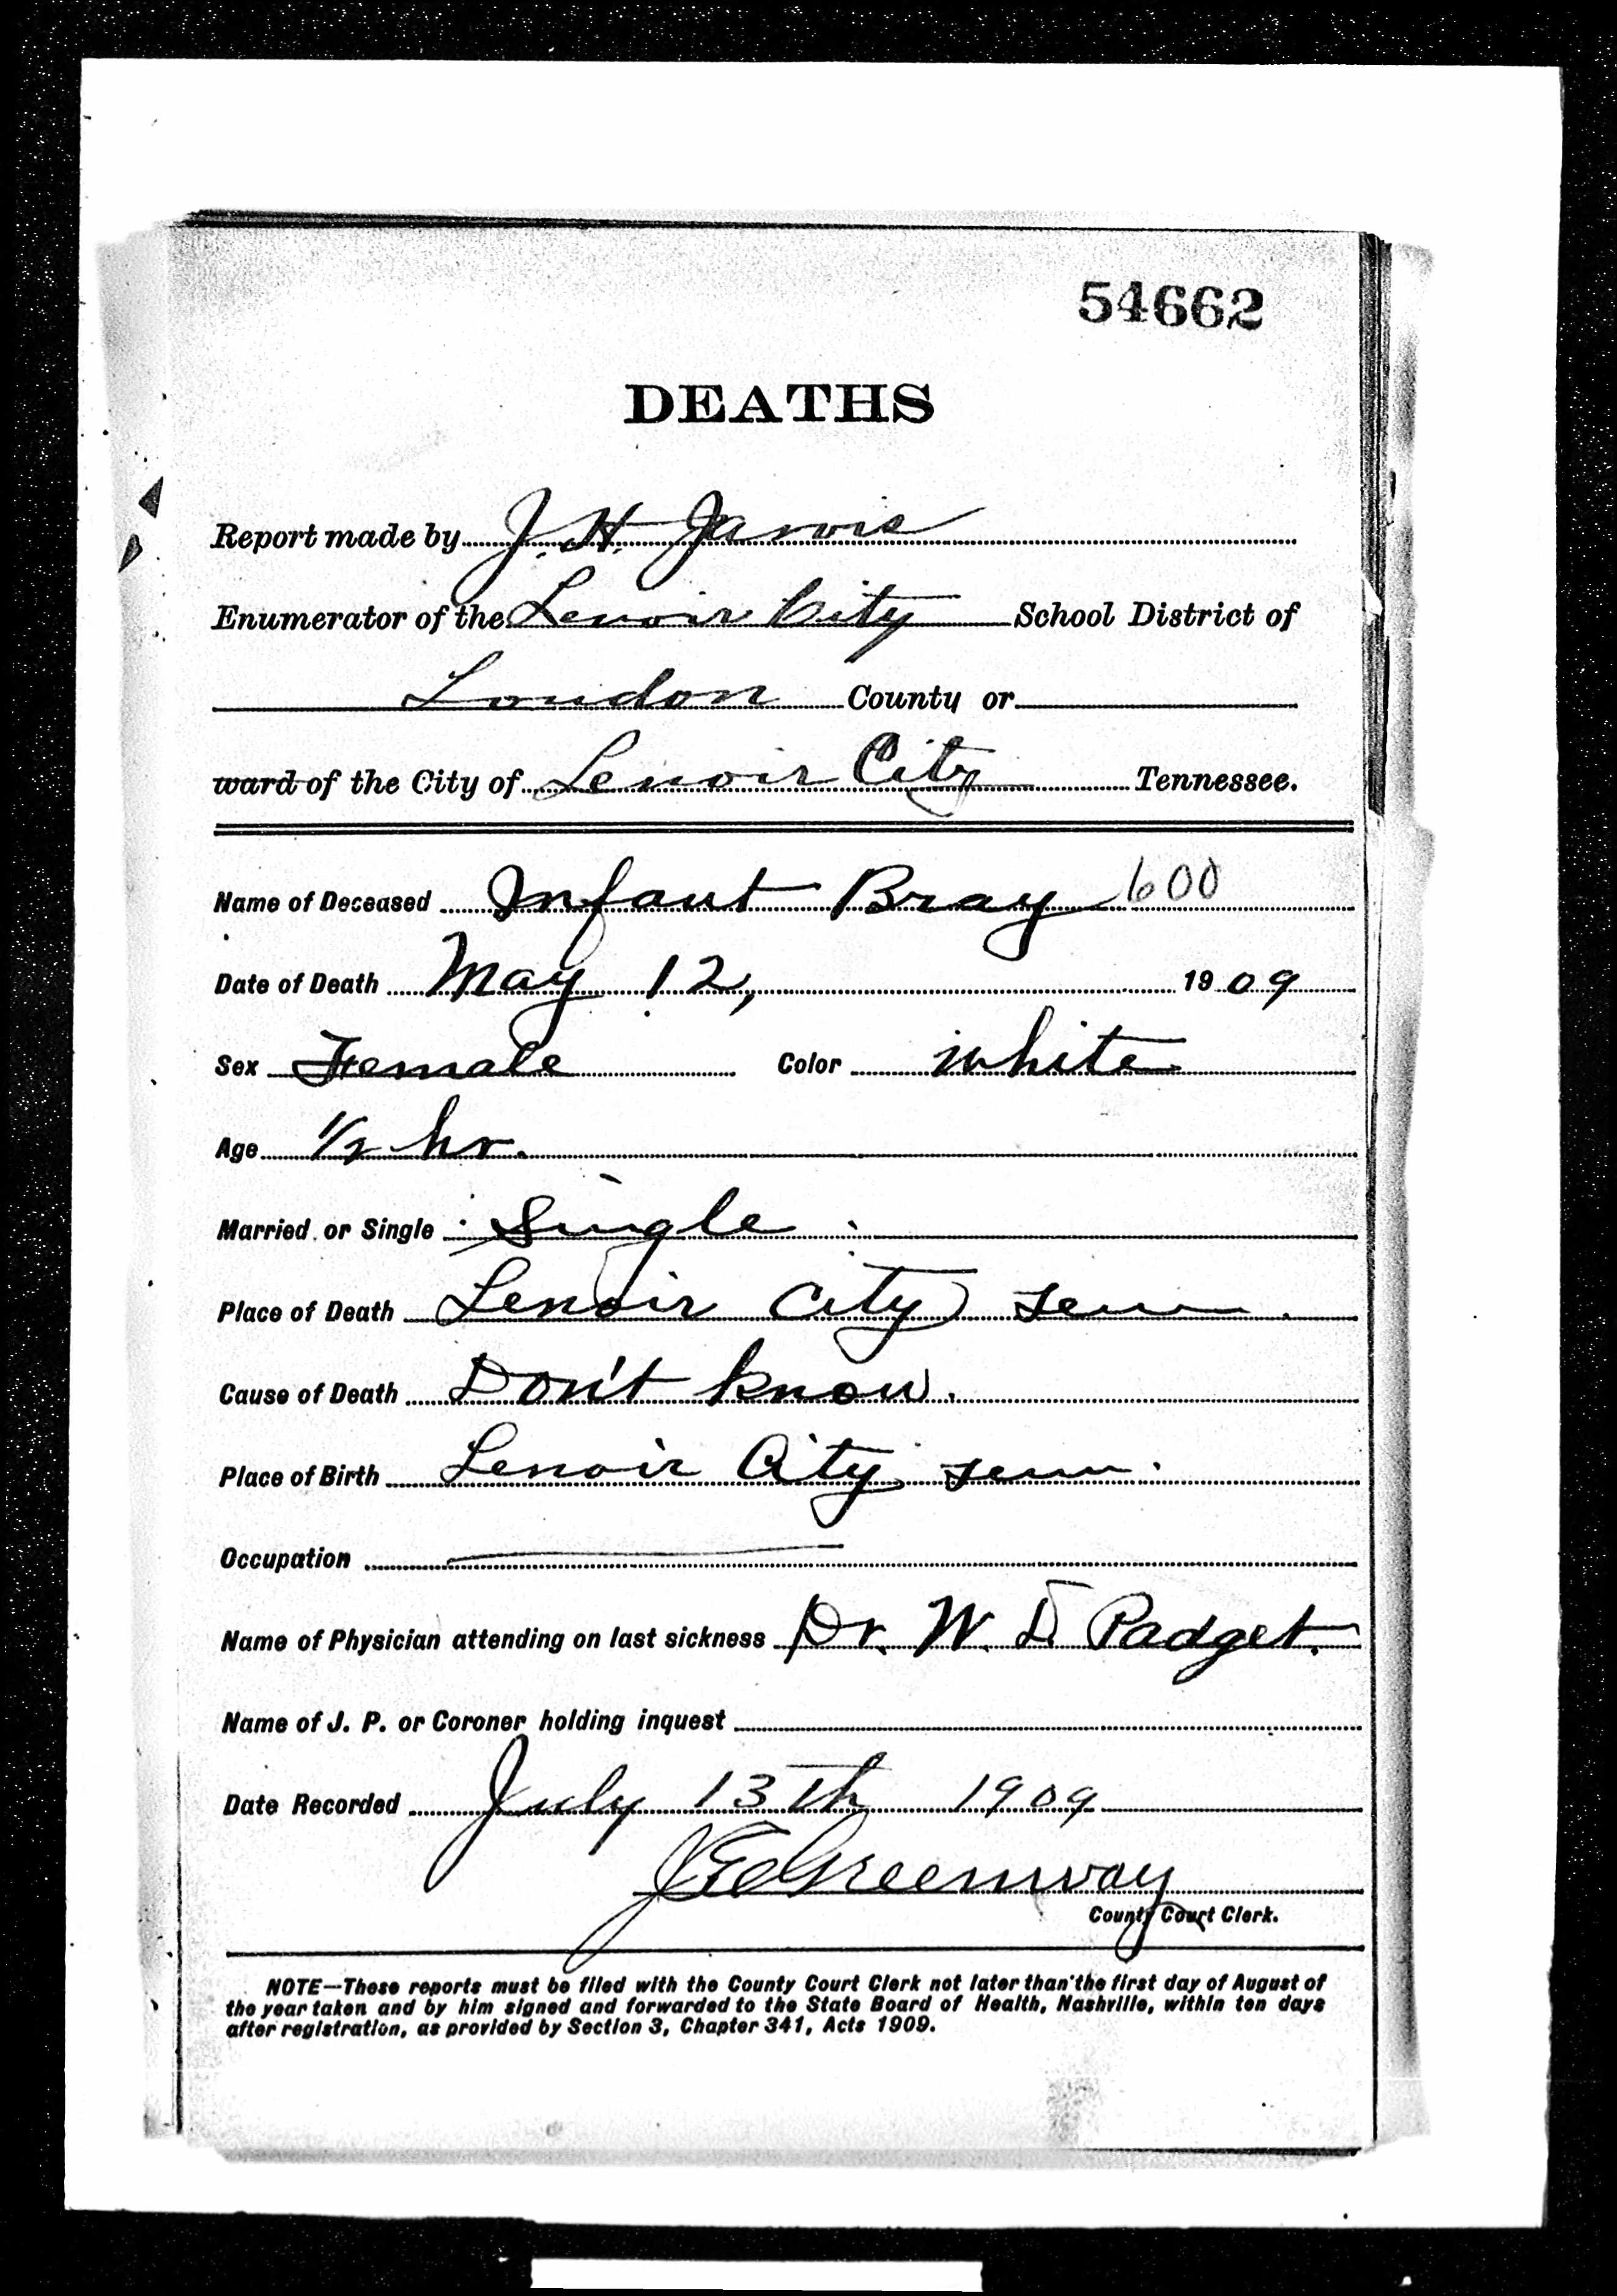 54662
DEATHS
Report made by J. H. Jarvis
Enumerator of the Lenoir City School District of
Loudon County or
ward of the City of Lenoir City Tennessee.
Name of Deceased Infant Bray 600
Date of Death May 12, 1909
Sex Female Color White
Age 1/2 hr.
Married or Single Single
Place of Death Lenoir City Tenn.
Cause of Death Don't know.
Place of Birth Lenoir City Tenn.
Occupation
Name of Physician attending on last sickness Dr. W. D. Padget.
Name of J. P. or Coroner holding inquest
Date Recorded July 13th 1909
Greenway
County Court Clerk.
NOTE—These reports must be filed with the County Court Clerk not later than the first day of August of
the year taken and by him signed and forwarded to the State Board of Health, Nashville, within ten days
after registration, as provided by Section 3, Chapter 341, Acts 1909.